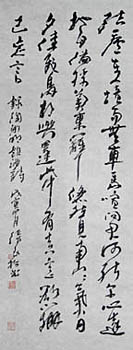 結廬在人境而無車馬喧問君何能爾心遠
地自偏採菊東籬下悠然見南山山氣日
夕佳飛鳥相與還此中有真意欲辨
已忘言